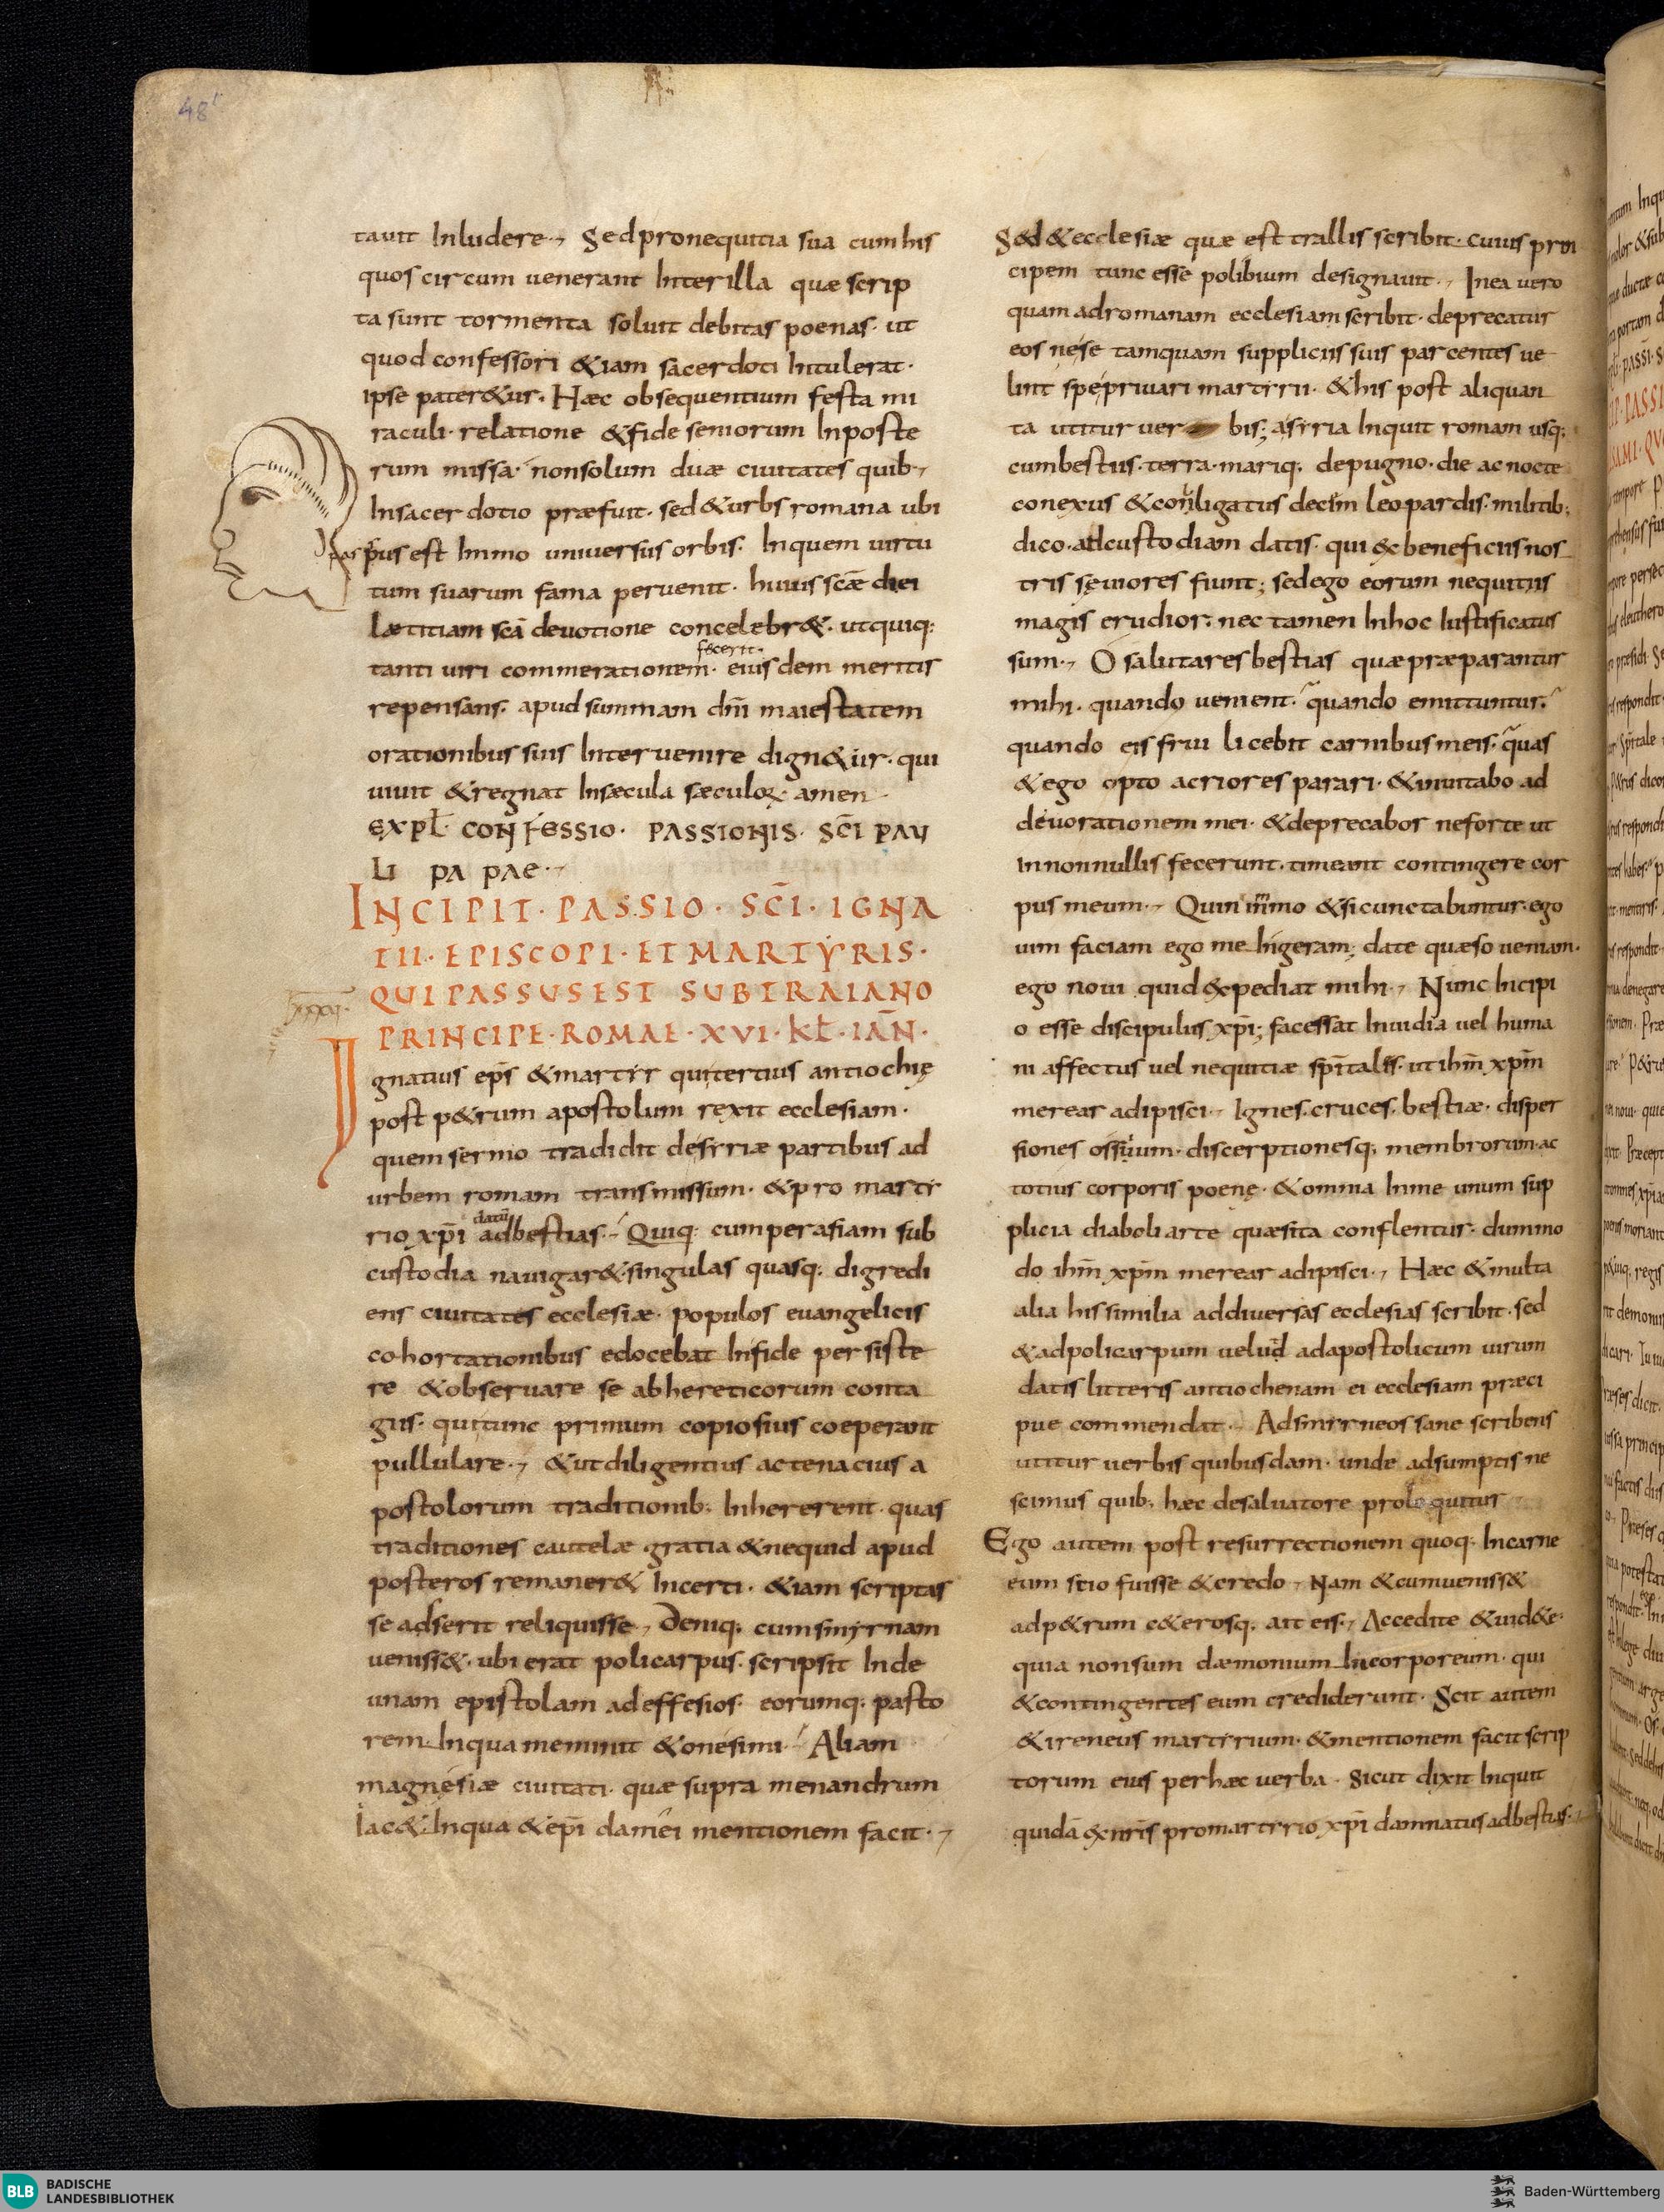 48v
tauit Inludere., Sed pronequitia sua cum his
quos circum uenerant Inter illa quæ scrip
ta sunt tormenta soluit debitas poenas. ut
quod confessori &iam sacerdoti Intulerat.
ipse pater&ur. Hæc obsequentium festa mi
raculi. relatione &fide seniorum Inposte
rum missa. non solum duæ ciuitates quib,
Insacerdotio præfuit. sed &urbs romana ubi
pus est Immo uniuersus orbis. Inquem uirtu
tum suarum fama peruenit. huius scǣ diei
lætitiam scā deuotione concelebr&. utquiq:
fecerit.
tanti uiri commerationem. eiusdem meritis
repensans. apud summam dn̄i maiestatem
orationibus suis Interuenire dign&ur. qui
uiuit &regnat Insæcula sæculoꝝ amen
EXPL̄. CONFESSIO. PASSIONIS. SC̄I PAU
LI PA PAE.
INCIPIT. PASSIO. SC̄I. IGNA
TII. EPISCOPI. ET MARTYRIS.
QUI PASSUS EST SUB TRAIANO
PRINCIPE. ROMAE. XVI. KL̄. IAN̄.
Ignatius ep̄s &martir qui tertius antiochię
post p&rum apostolum rexit ecclesiam.
quem sermo tradidit desirriæ partibus ad
urbem romam transmissum. &pro martÿ
datū
rio xp̄i ad bestias. Quiq: cum per asiam sub
custodia nauigar& singulas quasq; digredi
ens ciuitates ecclesiæ. populos euangelicis
cohortationibus edocebat Infide persiste
re &obseruare se ab hereticorum conta
giis. qui tunc primum copiosius coeperant
pullulare., &ut diligentius ac tenacius a
postolorum traditionib; Inhererent. quas
traditiones cautelæ gratia &nequid apud
posteros remaner& Incerti. &iam scriptas
se adserit reliquisse, Deniq; cum smyrnam
ueniss&. ubi erat policarpus. scripsit Inde
unam epistolam ad effesios. eorumq; pasto
rem. Inqua meminit &onesimi. Aliam
magnesiæ ciuitati. quæ supra menandrum
Iac&. Inqua &ep̄i damei mentionem facit.,
S&d &ecclesiæ quæ est trallis scribit. cuius prin
cipem tunc esse polibium designauit., Inea uero
quam ad romanam ecclesiam scribit. deprecatur
eos nese tamquam suppliciis suis parcentes ue
lint spe priuari martirii. &his post aliquan
ta utitur uer bis; asiria Inquit romam usq;
cum bestiis. terra. mariq; depugno. die ac nocte
conexus &conligatus decim leopardis. militib;
dico. ad custodiam datis. qui ex beneficiis nos
tris sęuiores fiunt; sed ego eorum nequitiis
magis erudior. nec tamen Inhoc Iustificatus
sum., O salutares bestias quæ præparantur
mihi. quando uenient. quando emittuntur.
quando eis frui licebit carnibus meis. quas
&ego opto acriores parari. &inuitabo ad
deuorationem mei. &deprecabor neforte ut
In nonnullis fecerunt. timeant contingere cor
pus meum., Quin immo &si cunctabuntur. ego
uim faciam ego me Ingeram; date quæso ueniam.
ego noui quid expediat mihi., Nunc Incipi
o esse discipulus xp̄i; facessat Inuidia uel huma
ni affectus uel nequitiæ sp̄italis. ut ih̄m xp̄m
merear adipisci., Ignes. cruces. bestiæ. disper
siones ossuum. discerptionesq; membrorum. ac
totius corporis poenę. &omnia Inme unum sup
plicia diaboli arte quæsita conflentur. dummo
do ih̄m xp̄m merear adipisci., Hæc &multa
alia his similia ad diuersas ecclesias scribit. sed
&ad policarpum uelud ad apostolicum uirum
datis litteris antiochenam ei ecclesiam præci
pue commendat., Ad smirneos sane scribens
utitur uerbis quibusdam. unde adsumptis ne
scimus quib; hæc de saluatore proloquitur
Ego autem post resurrectionem quoq; Incarne
eum scio fuisse &credo, Nam &cum ueniss&
ad p&rum c&erosq; ait eis., Accedite &uid&e.
quia non sum dæmonium Incorporeum. qui
&contingentes eum crediderunt. Scit autem
&ireneus martirium. &mentionem facit scrip
torum eius per hæc uerba. Sicut dixit Inquit
quidā ex nr̄is pro martirio xp̄i damnatus ad bestias.
BLB BADISCHE
LANDESBIBLIOTHEK
Baden-Württemberg